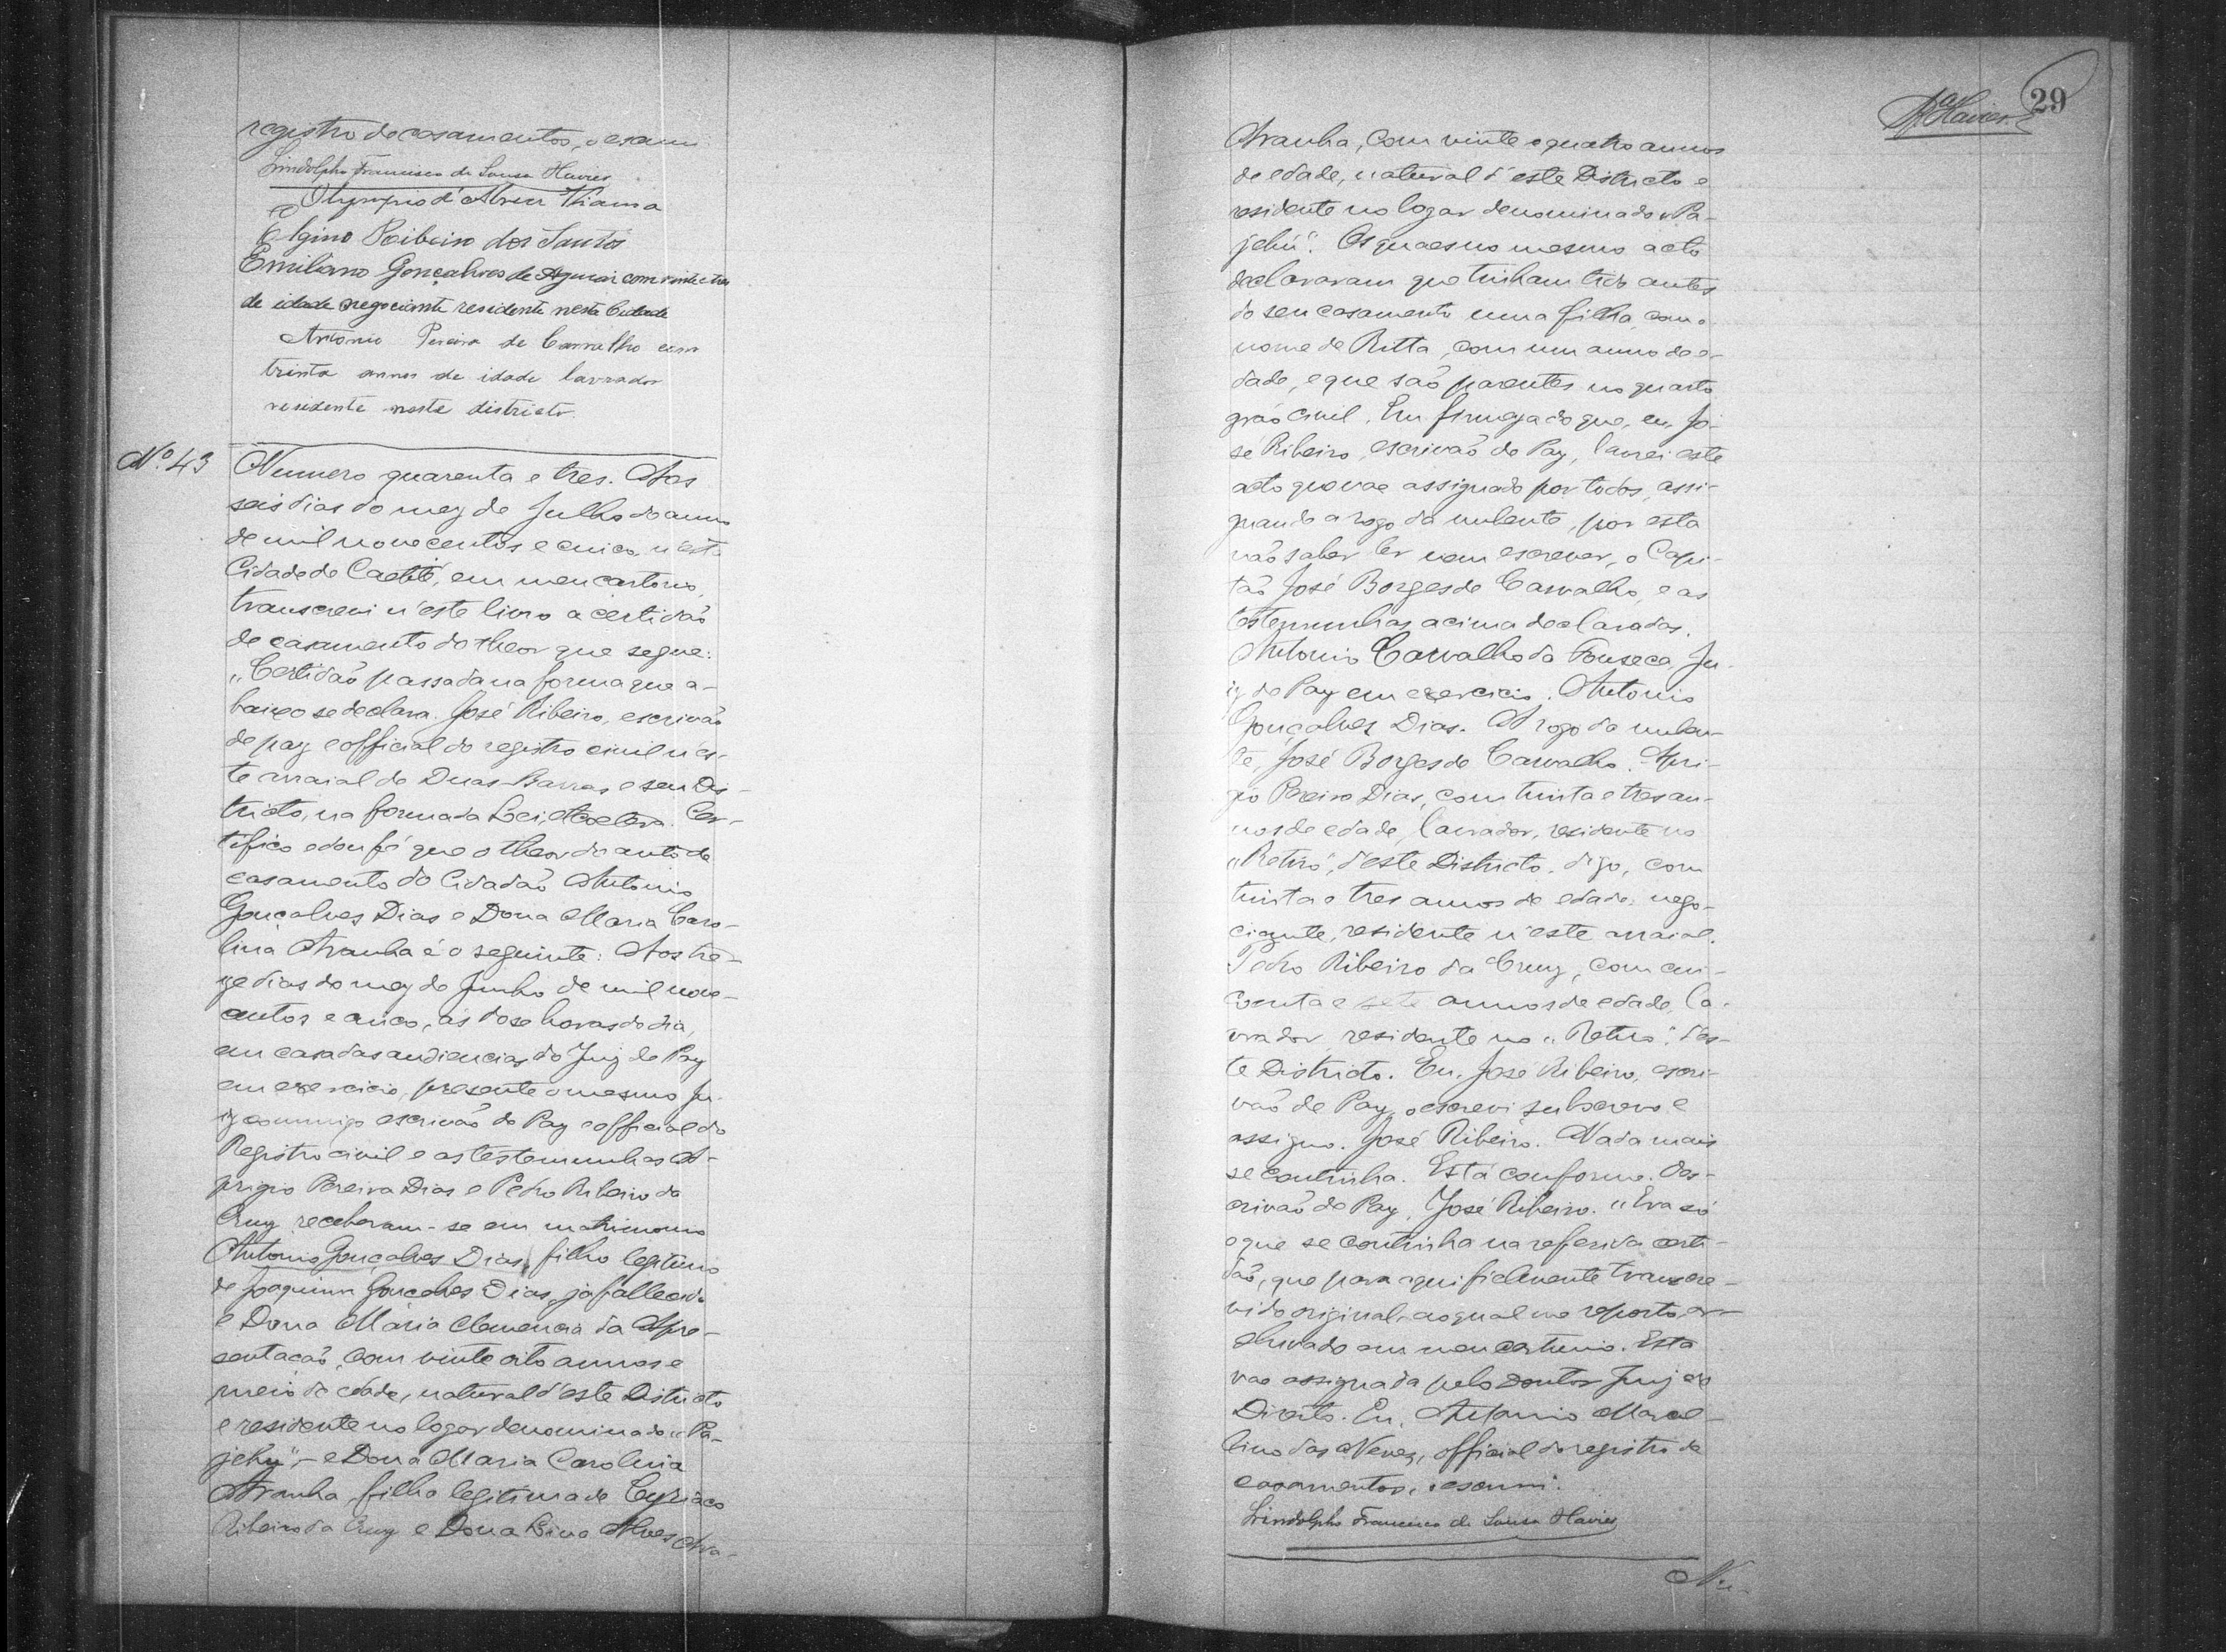 registro de casamentos, o escrevi
Lindolpho Francisco de Sousa Xavier
Olympio d'Abreu Vianna
Elgino Ribeiro dos Santos
Emiliano Gonçalves de Aguiar com vinte e tres
de idade negociante residente nesta Cidade
Antonio Pereira de Carvalho com
trinta annos de idade lavrador
residente neste districto.
Nº 43
Numero quarenta e tres. Aos
seis dias do mez de Julho do anno
de mil novecentos e cinco, n'esta
Cidade de Caetité, em meu cartorio,
transcrevi n'este livro a certidão
de casamento do theor que segue:
"Certidão passada na forma que a-
baixo se declara. José Ribeiro, escrivão
de paz e official do registro civil n'es-
te arraial de Duas Barras e seu Dis-
tricto, na forma da Lei, etcoetera. Cer-
tifico e dou fé que o theor do auto de
casamento do Cidadão Antonio
Gonçalves Dias e Dona Maria Caro-
lina Aranha é o seguinte: Aos tre-
ze dias do mez de Junho de mil nove-
centos e cinco, ás dose horas do dia,
em casa das audiencias do Juiz de Paz
em exercicio, presente o mesmo Ju-
iz commigo escrivão de Paz e official do
Registro civil e as testemunhas A-
prigio Pereira Dias e Pedro Ribeiro da
Cruz receberam-se em matrimonio
Antonio Gonçalves Dias, filho legitimo
de Joaquim Gonçalves Dias, já fallecido
e Dona Maria Clemencia da Apre-
sentação, com vinte oito annos e
meio de edade, natural d'este Districto
e residente no logar denominado "Pa-
jehú", - e Dona Maria Carolina
Aranha, filha legitima de Cyriaco
Ribeiro da Cruz e Dona Lina Alves Ara-
Xavier 29
Aranha, com vinte e quatro annos
de edade, natural d'este Districto e
residente no logar denominado "Pa-
jehú". Os quaes no mesmo acto
declararam que tinham tido antes
do seu casamento uma filha, com o
nome de Ritta, com um anno de e-
dade, e que são parentes no quarto
gráo civil. Em firmeza do que, eu, Jo-
sé Ribeiro, escrivão de Paz, lavrei este
acto que vae assignado por todos, assi-
gnando a rogo da nubente, por esta
não saber ler nem escrever, o Capi-
tão José Borges de Carvalho, e as
testemunhas acima declaradas.
Antonio Carvalho da Fonseca, Ju-
iz de Paz em exercicio. Antonio
Gonçalves Dias. A rogo da nuben-
te, José Borges de Carvalho. Apri-
gio Pereira Dias, com trinta e tres an-
nos de edade, lavrador, residente no
"Retiro", d'este Districto, digo, com
trinta e tres annos de edade, nego-
ciante, residente n'este arraial.
Pedro Ribeiro da Cruz, com cin-
coenta e sete annos de edade, la-
vrador, residente no "Retiro", d'es-
te Districto. Eu, José Ribeiro, escri-
vão de Paz, o escrevi subscrevo e
assigno. José Ribeiro. Nada mais
se continha. Está conforme. O es-
crivão de Paz, José Ribeiro." Era só
o que se continha na referida certi-
dão, que para aqui fielmente transcre-
vi do original, ao qual me reporto, ar-
chivado em meu cartorio. Esta
vae assignada pelo Doutor Juiz de
Direito. Eu, Antonio Marcel-
lino das Neves, official do registro de
casamentos, o escrevi.
Lindolpho Francisco de Sousa Xavier
Nu-